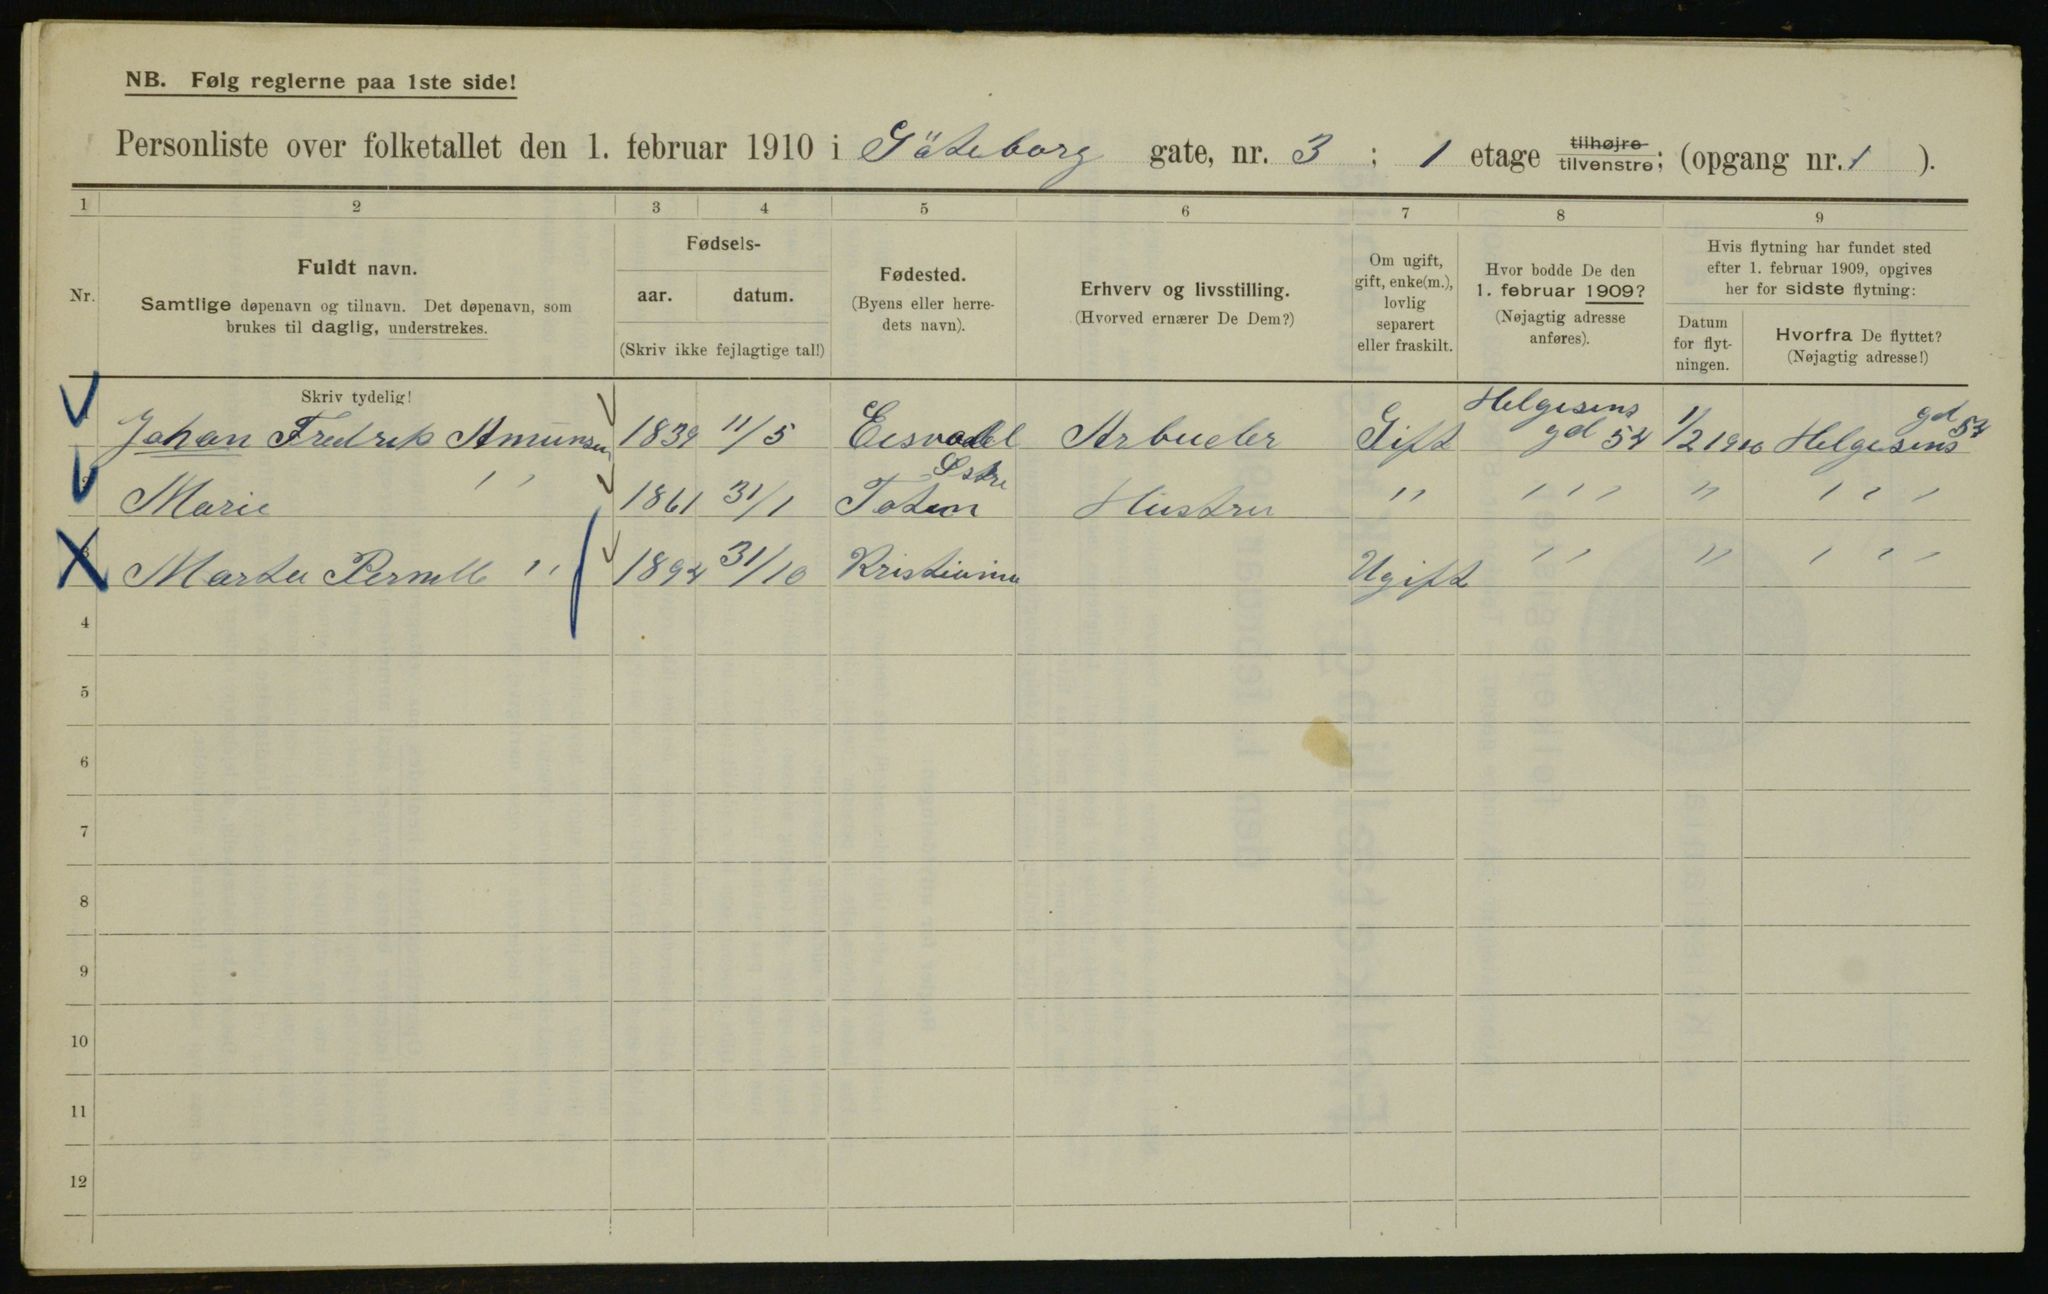 NB. Følg reglerne paa 1ste side!
Personliste over folketallet den 1. februar 1910 i Göteborg gate, nr. 3 ; 1 etage tilhøjre tilvenstre; (opgang nr. 1 ).
1 2 3 4 5 6 7 8 9
Nr.
Fuldt navn.
Samtlige døpenavn og tilnavn. Det døpenavn, som
brukes til daglig, understrekes.
Fødsels-
aar. datum.
(Skriv ikke fejlagtige tal!)
Fødested.
(Byens eller herre-
dets navn).
Erhverv og livsstilling.
(Hvorved ernærer De Dem?)
Om ugift,
gift, enke(m.),
lovlig
separert
eller fraskilt.
Hvor bodde De den
1. februar 1909?
(Nøjagtig adresse
anføres).
Hvis flytning har fundet sted
efter 1. februar 1909, opgives
her for sidste flytning:
Datum
for flyt-
ningen.
Hvorfra De flyttet?
(Nøjagtig adresse!)
Skriv tydelig!
1 Johan Fredrik Amunsen 1839 11/5 Eisvold Arbeider Gift Helgesens gd 54 1/2 1910 Helgesens gd 54
2 Marie " 1861 31/1 Østre Toten Hustru " " " " " " " "
3 Marta Pernell " 1894 31/10 Kristiania Ugift " " " " " "
4
5
6
7
8
9
10
11
12